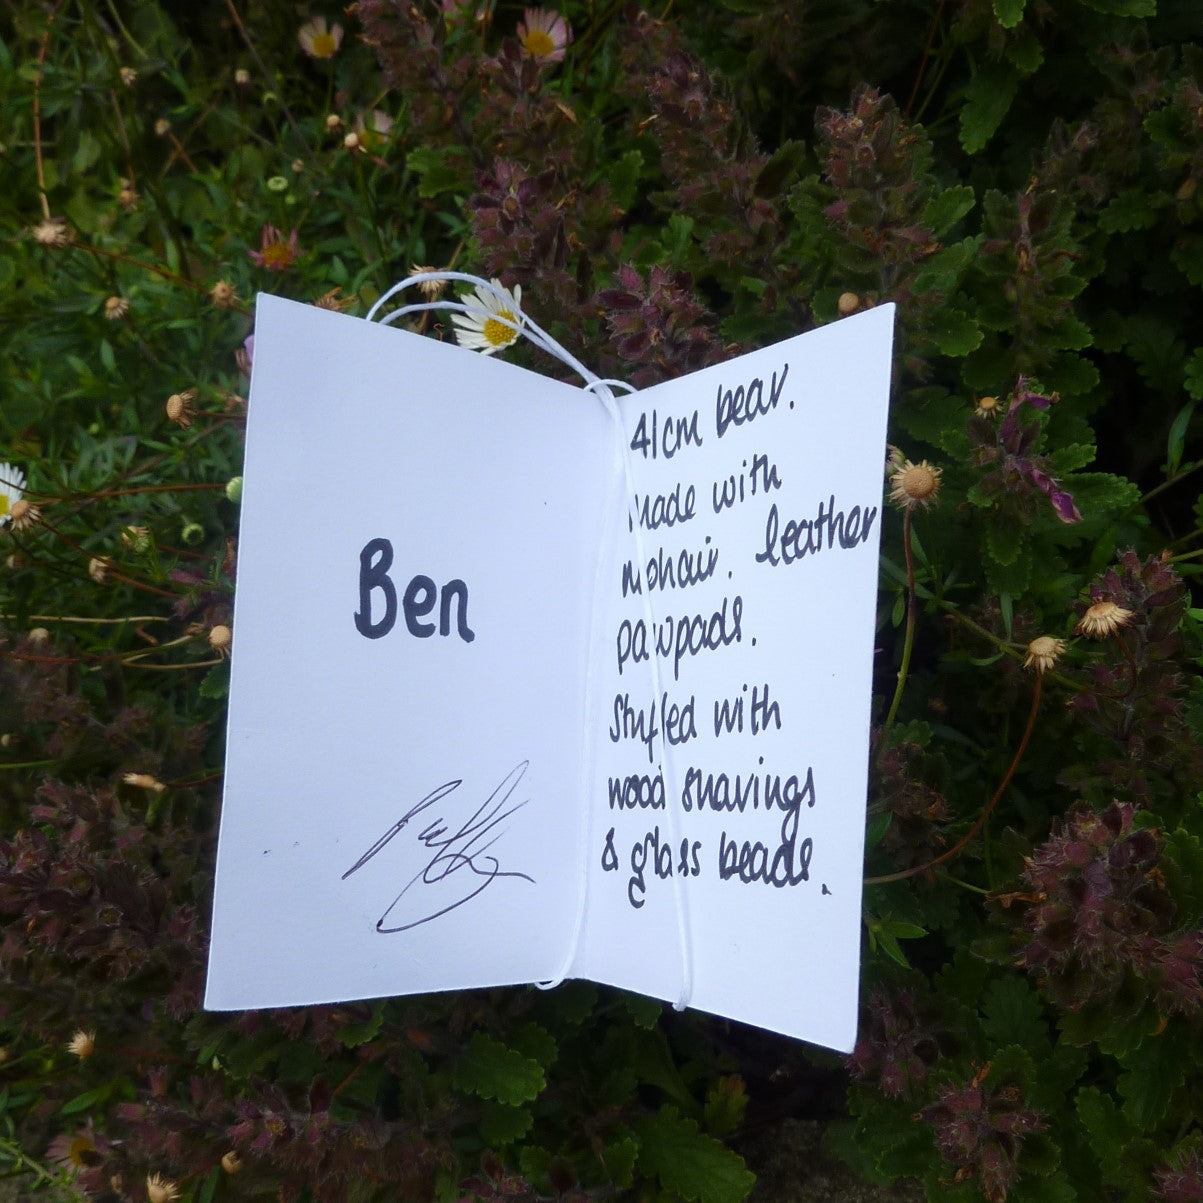 Ben
41cm bear.
made with
mohair. leather
pawpads.
Stuffed with
wood shavings
& glass beads.